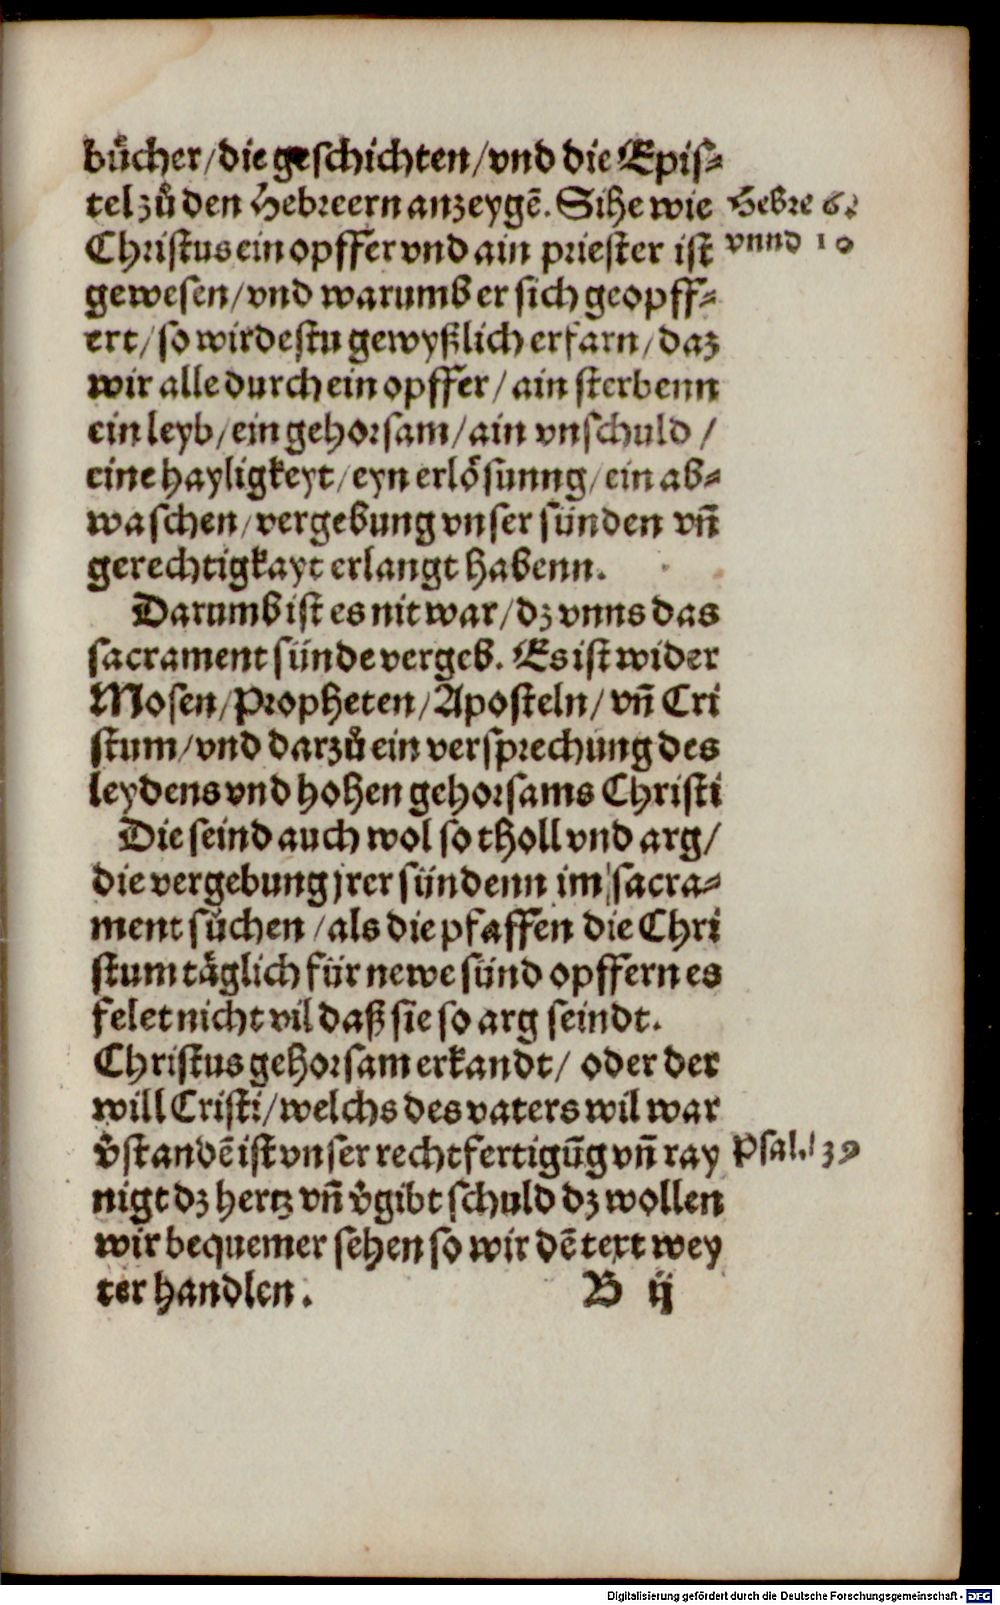 buͤcher/die geschichten/vnd die Epis-
tel zuͦ den Hebreern anzeygē. Sihe wie
Hebre 6.
Christus ein opffer vnd ain priester ist
vnnd 10
gewesen/vnd warumb er sich geopff-
ert/so wirdestu gewyßlich erfarn/daz
wir alle durch ein opffer/ain sterbenn
ein leyb/ein gehorsam/ain vnschuld/
eine hayligkeyt/eyn erlösunng/ein ab-
waschen/vergebung vnser sünden vn̄
gerechtigkayt erlangt habenn.
Darumb ist es nit war/dz vnns das
sacrament sünde vergeb. Es ist wider
Mosen/Propheten/Aposteln/vn̄ Cri
stum/vnd darzuͦ ein versprechung des
leydens vnd hohen gehorsams Christi
Die seind auch wol so tholl vnd arg/
die vergebung jrer sündenn im sacra-
ment suͤchen/als die pfaffen die Chri
stum täglich für newe sünd opffern es
felet nicht vil daß sie so arg seindt.
Christus gehorsam erkandt/ oder der
will Cristi/welchs des vaters wil war
v̓standē ist vnser rechtfertigūg vn̄ ray
Psal. 39
nigt dz hertz vn̄ v̓gibt schuld dz wollen
wir bequemer sehen so wir dē text wey
ter handlen.
B ij
Digitalisierung gefördert durch die Deutsche Forschungsgemeinschaft - DFG